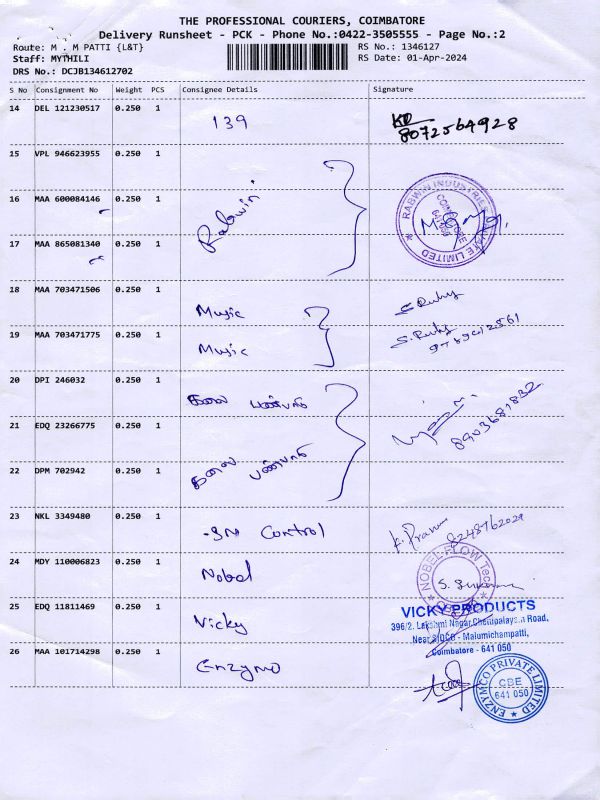 THE PROFESSIONAL COURIERS, COIMBATORE
Delivery Runsheet - PCK - Phone No.:0422-3505555 - Page No.:2
Route: M . M PATTI {L&T}
RS No.: 1346127
Staff: MYTHILI
RS Date: 01-Apr-2024
DRS No.: DCJB134612702
S No Consignment No Weight PCS Consignee Details Signature
14 DEL 121230517 0.250 1 139
8072564928
15 VPL 946623955 0.250 1
16 MAA 600084146 0.250 1 Rabwin
RABWIN INDUSTRIES PRIVATE LIMITED
17 MAA 865081340 0.250 1
18 MAA 703471506 0.250 1 Music
S. Ruby
19 MAA 703471775 0.250 1 Music
S. Ruby
20 DPI 246032 0.250 1
21 EDQ 23266775 0.250 1
8903681832
22 DPM 702942 0.250 1
23 NKL 3349480 0.250 1 Control
24 MDY 110006823 0.250 1 Nobel
NOBEL FLOW Tec
25 EDQ 11811469 0.250 1 Vicky
VICKY PRODUCTS
396/2. Lakshmi Nagar, Road,
Near - Malumichampatti,
Coimbatore - 641 050
26 MAA 101714298 0.250 1 Enzymo
ENZYMCO PRIVATE LIMITED
CBE
641 050